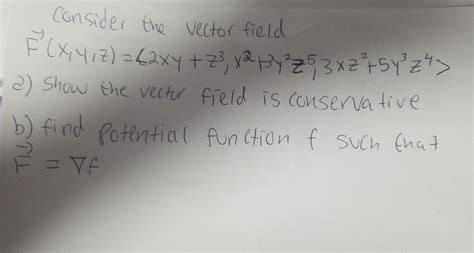 consider the vector field
F⃗(x,y,z) = <2xy + z³, x² + 3y²z⁵, 3xz² + 5y³z⁴>
a) Show the vector field is conservative
b) find potential function f such that
F⃗ = ∇f